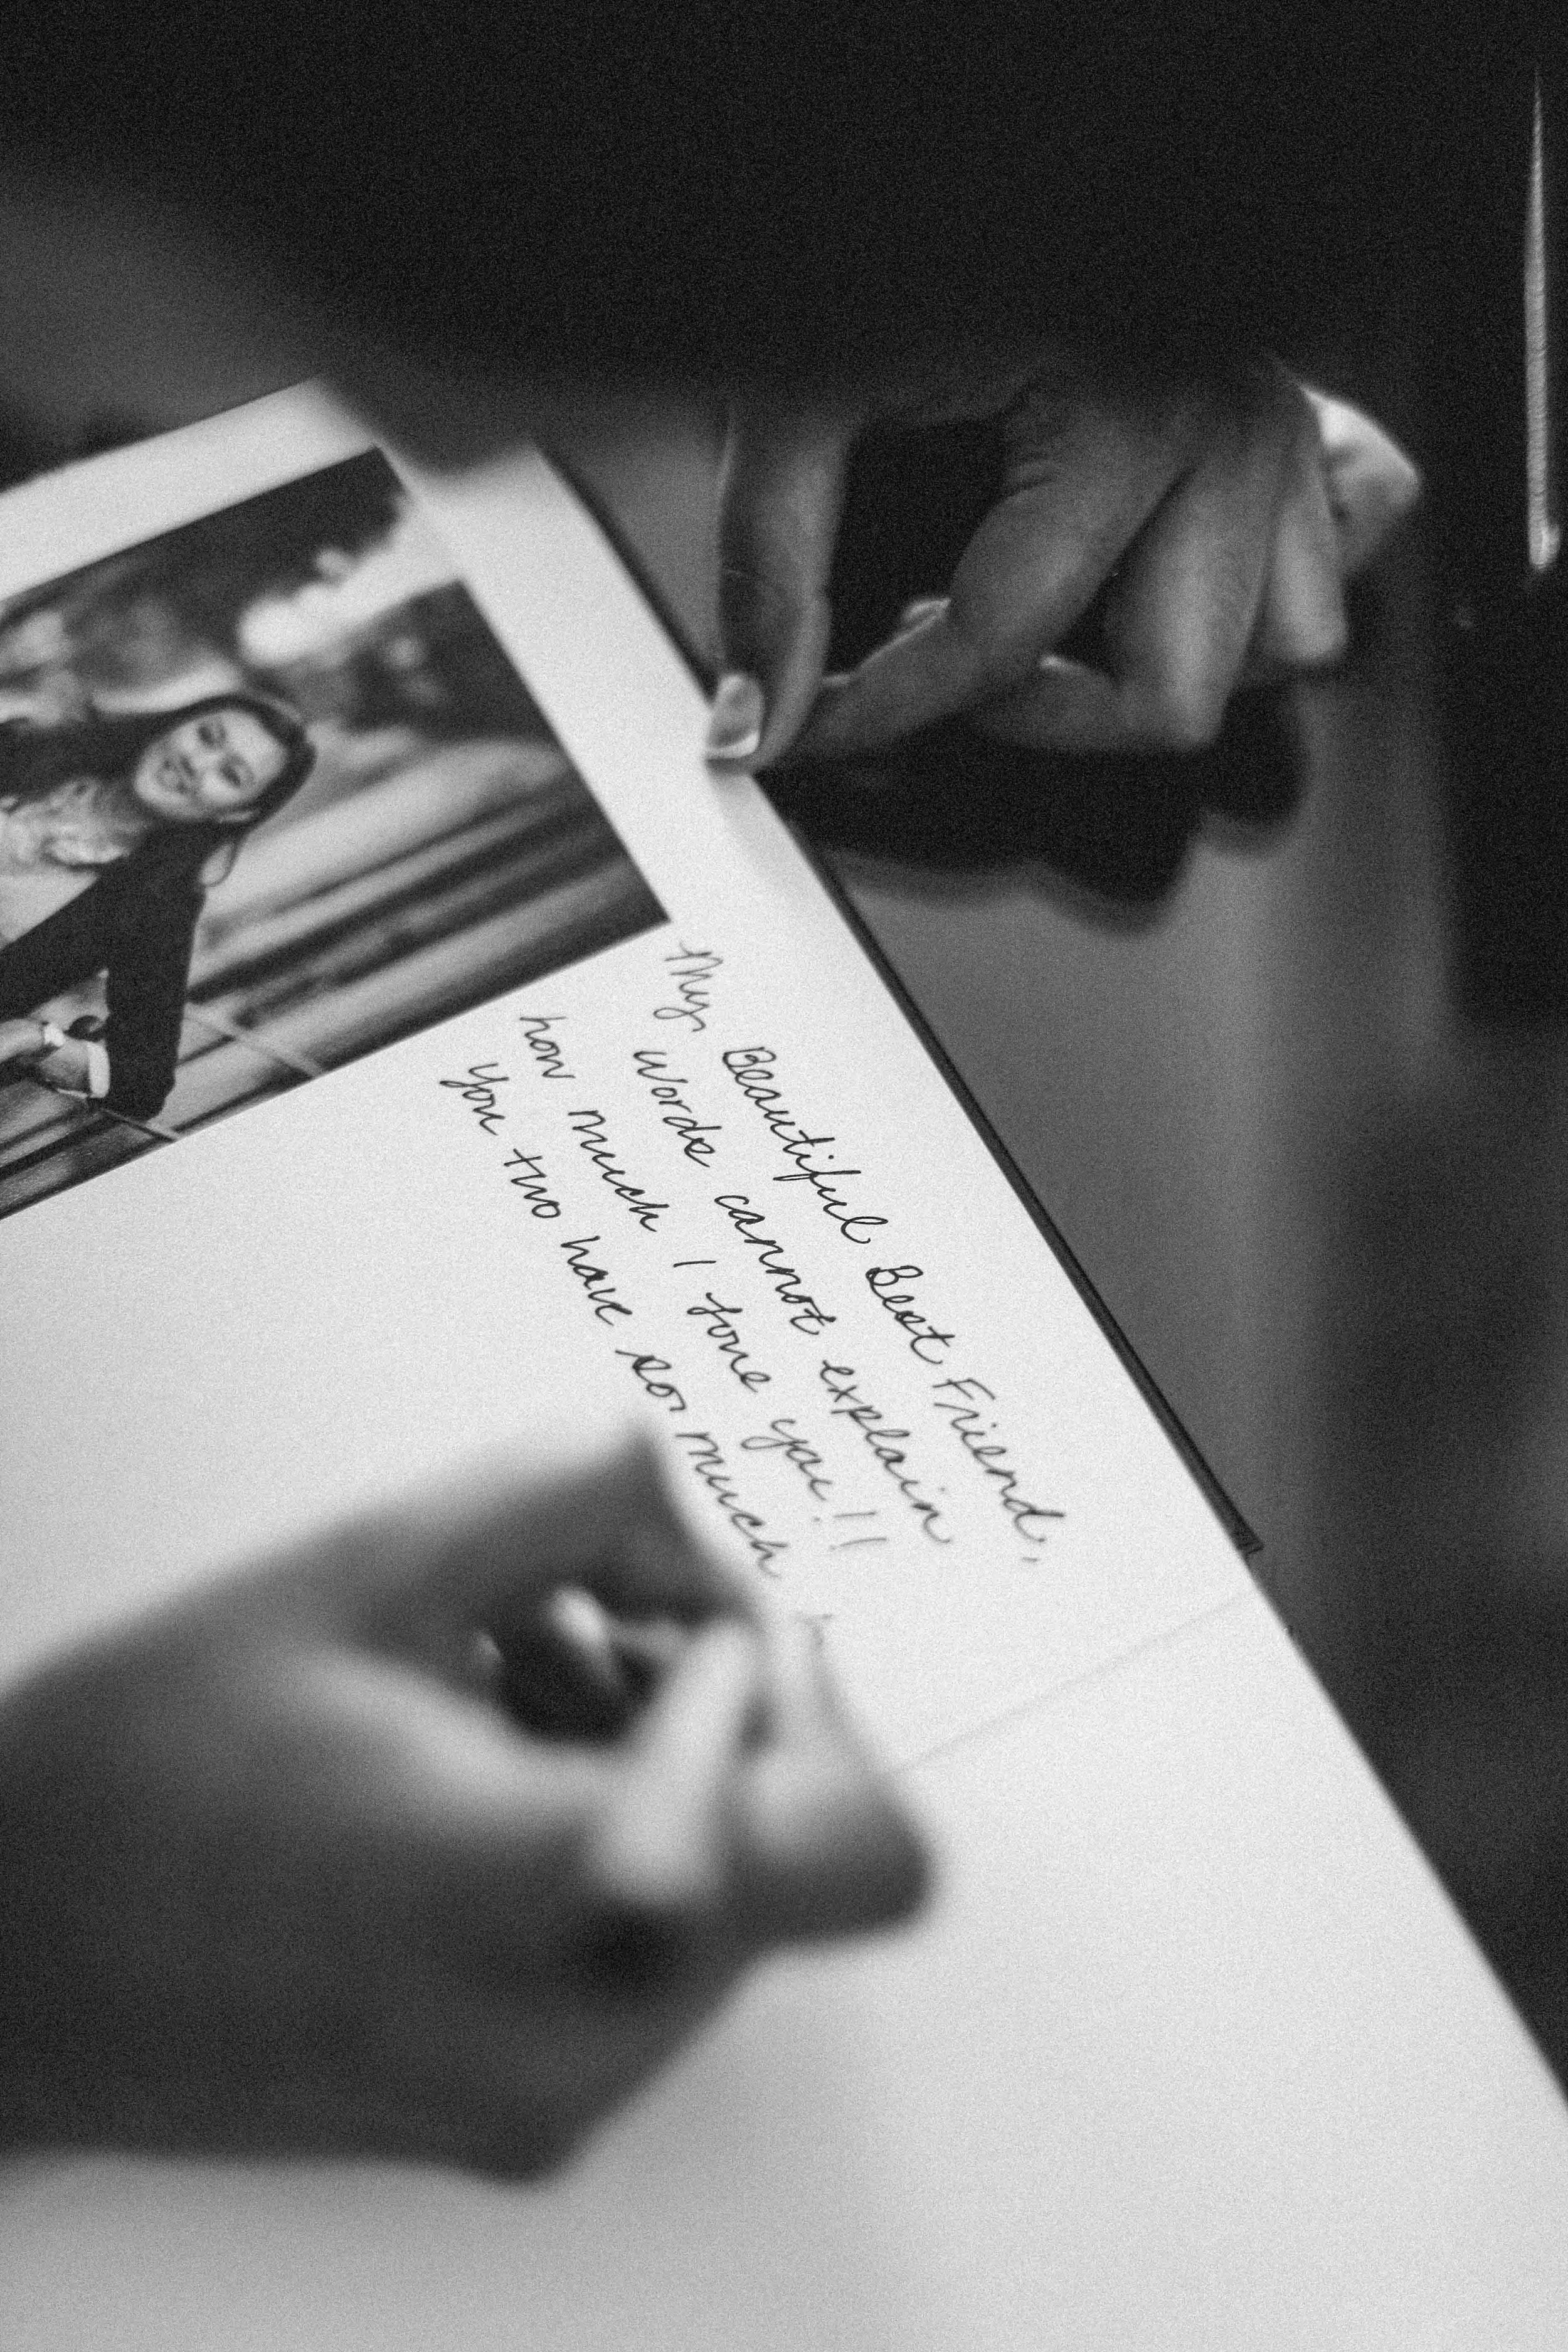 My Beautiful Best Friend,
Words cannot explain
how much I love you!!
You two have so much